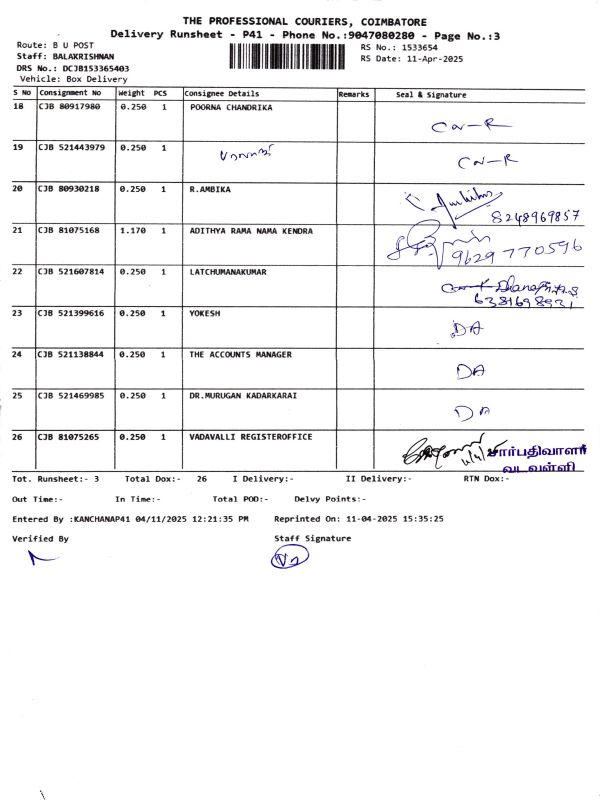 THE PROFESSIONAL COURIERS, COIMBATORE
Delivery Runsheet - P41 - Phone No.:9047080280 - Page No.:3
Route: B U POST
RS No.: 1533654
Staff: BALAKRISHNAN
RS Date: 11-Apr-2025
DRS No.: DCJB153365403
Vehicle: Box Delivery
S No Consignment No Weight PCS Consignee Details Remarks Seal & Signature
18 CJB 80917980 0.250 1 POORNA CHANDRIKA
19 CJB 521443979 0.250 1
20 CJB 80930218 0.250 1 R.AMBIKA
8248969857
21 CJB 81075168 1.170 1 ADITHYA RAMA NAMA KENDRA
9629770596
22 CJB 521607814 0.250 1 LATCHUMANAKUMAR
6381698931
23 CJB 521399616 0.250 1 YOKESH
DA
24 CJB 521138844 0.250 1 THE ACCOUNTS MANAGER
DA
25 CJB 521469985 0.250 1 DR.MURUGAN KADARKARAI
DA
26 CJB 81075265 0.250 1 VADAVALLI REGISTEROFFICE
சார்பதிவாளர்
வடவள்ளி
Tot. Runsheet:- 3 Total Dox:- 26 I Delivery:- II Delivery:- RTN Dox:-
Out Time:- In Time:- Total POD:- Delvy Points:-
Entered By :KANCHANAP41 04/11/2025 12:21:35 PM Reprinted On: 11-04-2025 15:35:25
Verified By Staff Signature